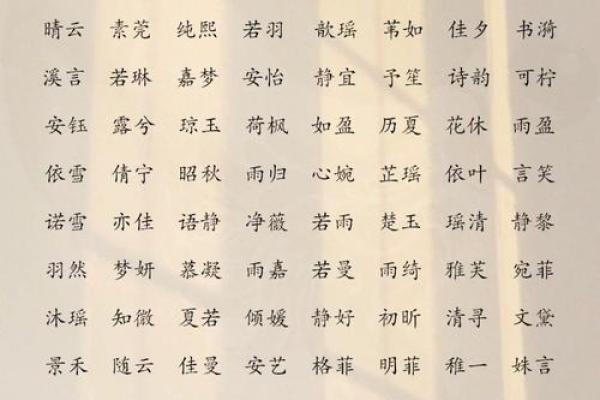 晴云 素莞 纯熙 若羽 歆瑶 苇如 佳夕 书漪
溪言 若琳 嘉梦 安怡 静宜 予笙 诗韵 可柠
安钰 露兮 琼玉 荷枫 如盈 历夏 花休 雨盈
依雪 倩宁 昭秋 雨归 心婉 芷瑶 依叶 言笑
诺雪 亦佳 语静 净薇 若雨 楚玉 瑶清 静黎
羽然 梦妍 慕凝 雨嘉 若曼 雨绮 雅芙 宛菲
沐瑶 知微 夏若 倾媛 静好 初昕 清寻 文黛
景禾 随云 佳曼 安艺 格菲 明菲 稚一 姝言